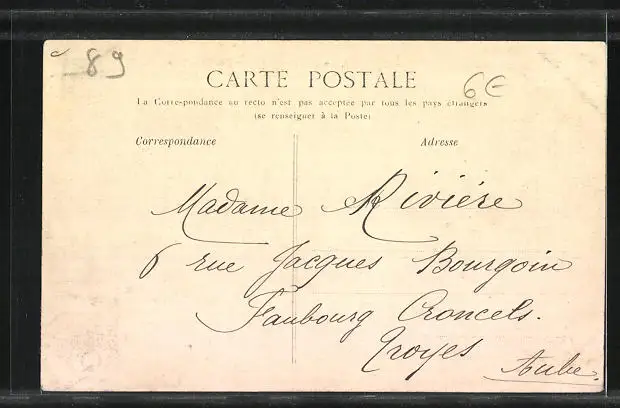 89
6€
CARTE POSTALE
La Correspondance au recto n'est pas acceptée par tous les pays étrangers
(se renseigner à la Poste)
Correspondance
Adresse
Madame Rivière
6 rue Jacques Bourgoin
Faubourg Croncels.
Troyes
Aube.